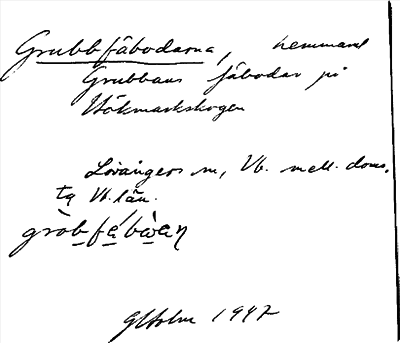 Grubbfäbodarna, hemmanet
Grubbans fäbodar på
Bökmarkskogen
Lövångers sn, Vb. mell. doms.
tg Vb. län.
gròbfábωan
GHolm 1947